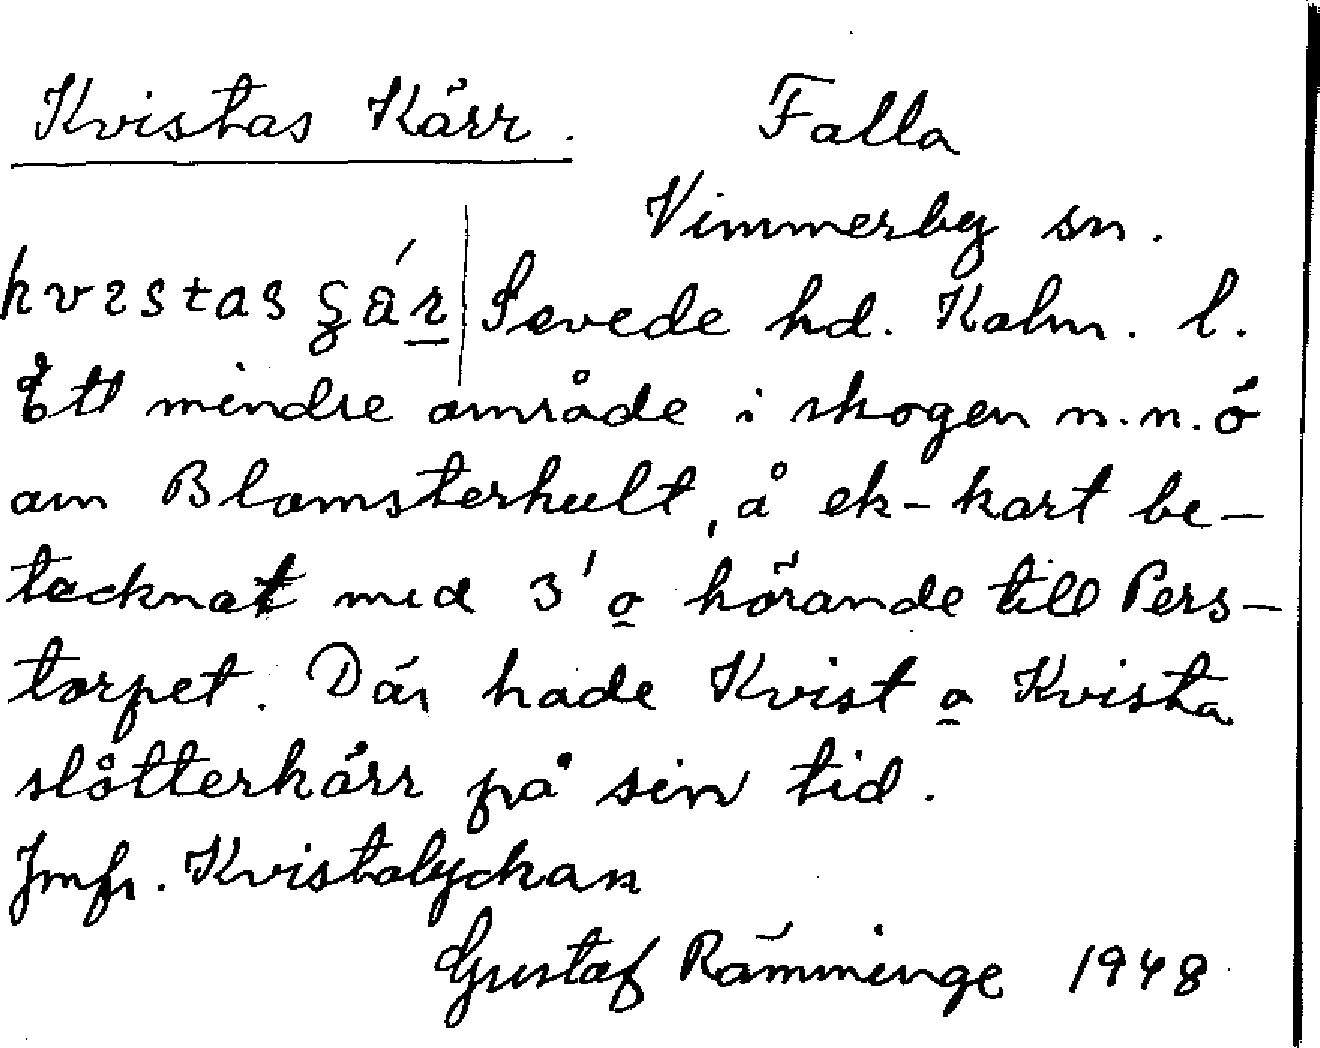 Kvistas Kärr. Falla
Vimmerby sn.
Sevede hd. Kalm. l.
Ett mindre område i skogen n.n.ö
om Blomsterhult, å ek-kart be-
tecknat med 3' o hörande till Pers-
torpet. Där hade Kvist o Kvista
slåtterkärr på sin tid.
Jmfr. Kvistalyckan
Gustaf Rämminge 1948